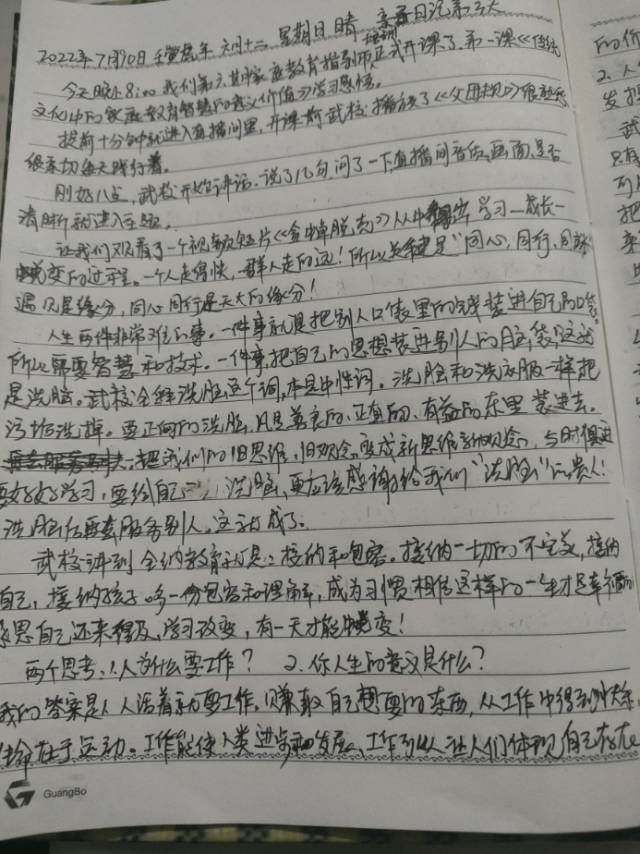 2022年7月10日 壬寅虎年 六月十二 星期日 晴 亲子日记第三天
培训
今天晚上8:00我们第六期家庭教育指导师正式开课了. 第一课《传统
文化中的家庭教育智慧的意义价值》学习感悟。
提前十分钟就进入直播间里, 开课前武校播放了《父母规》很熟悉
很亲切每天践行着。
刚好八点, 武校开始讲话. 说了几句问了一下直播间音质, 画面, 是否
清晰就进入主题。
让我们观看了一个视频短片《金蝉脱壳》从中 学习—成长—
蜕变的过程。一个人走得快, 一群人走的远! 所以关键是"同心, 同行, 同频
遇见是缘分, 同心同行是天大的缘分!
人生两件非常难的事。一件事就是把别人口袋里的钱装进自己的口袋。
所以需要智慧和技术。一件事把自己的思想装进别人的脑袋, 这就
是洗脑。武校诠释洗脑这个词, 本是中性词。洗脑和洗衣服一样把
污垢洗掉。要正向的洗脑, 凡是善良的, 正直的, 有益的东里装进去。
把我们的旧思维, 旧观念变成新思维新观念, 与时俱进
要好好学习, 要给自己 洗脑, 更应该感谢给我们"洗脑"的贵人!
洗脑后再去服务别人。这就成了。
武校讲到全纳教育就是: 接纳和包容。接纳一切的不完美, 接纳
自己, 接纳孩子. 多一份包容和理解, 成为习惯相信这样的一生才是幸福的
反思自己还来得及, 学习改变, 有一天才能蜕变!
两个思考: 1. 人为什么要工作? 2. 你人生的意义是什么?
我的答案是1. 人活着就要工作. 赚取自己想要的东西, 从工作中得到快乐
生命在于运动。工作能使人类进步和发展。工作可以让人们体现自己存在
GuangBo
的价
2. 人
发挥
武
只有
列
把
来